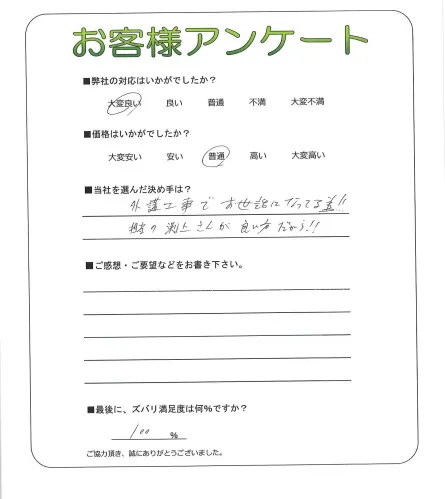 お客様アンケート
■弊社の対応はいかがでしたか？
大変良い 良い 普通 不満 大変不満
■価格はいかがでしたか？
大変安い 安い 普通 高い 大変高い
■当社を選んだ決め手は？
工事で お世話になってる
さんが 良い方だから!!
■ご感想・ご要望などをお書き下さい。
■最後に、ズバリ満足度は何%ですか？
100 %
ご協力頂き、誠にありがとうございました。